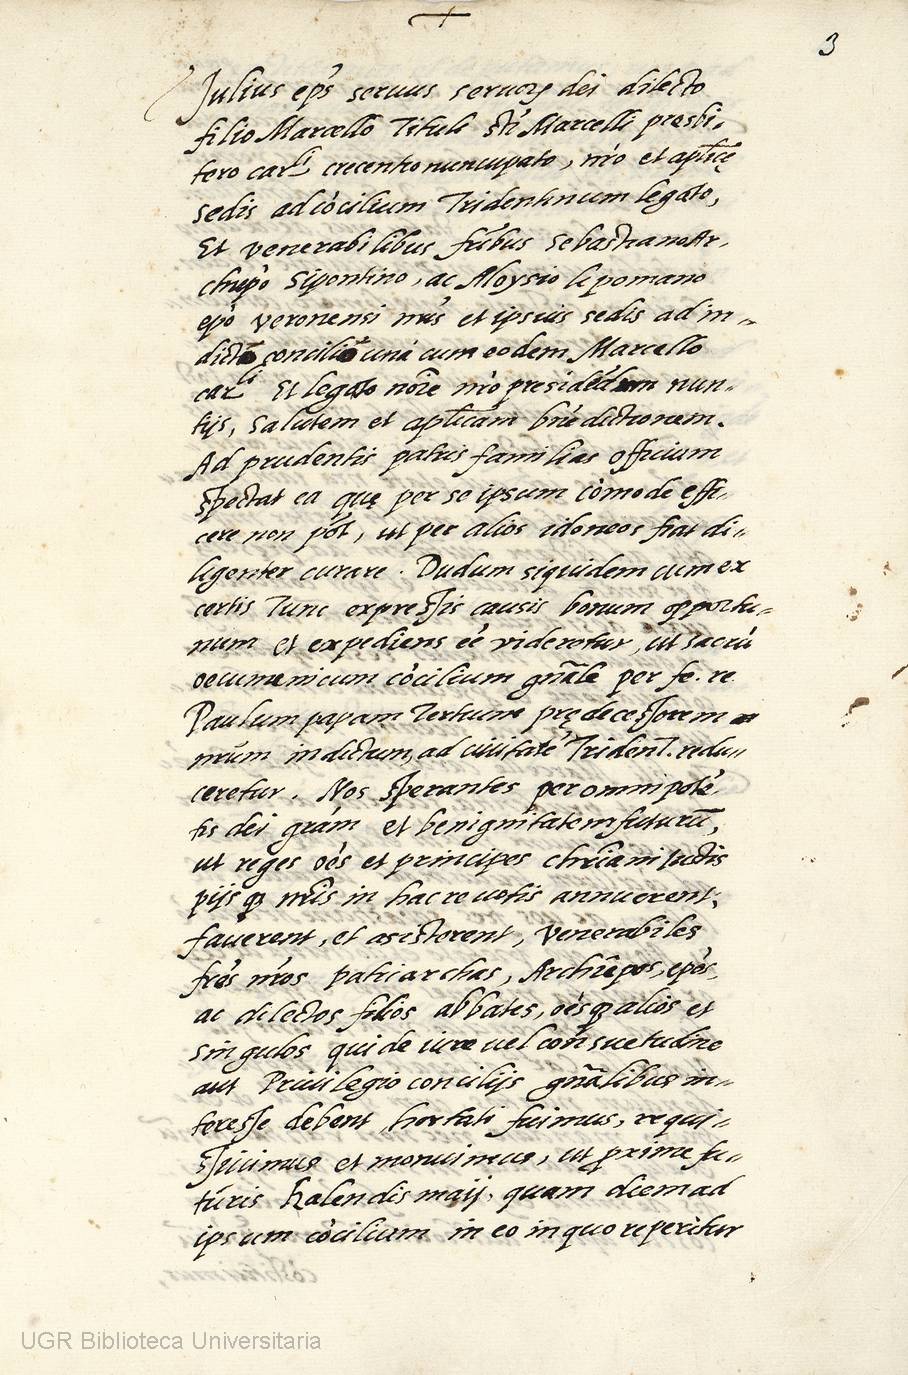 3
Julius ep̃s seruus seruorꝫ dei dilecto
filio Marcello Tituli sti Marcelli presbi„
tero carli crecentio nuncupato, nr̃o et aplicę
sedis ad cõcilium Tridentinum legato,
Et venerabilibus fr̃ibus Sebastiano Ar„
chiep̃o Sipontino, ac Aloysio lipomano
ep̃o veronensi nr̃is et ipsius sedis ad in„
dictũ conciliũ una cum eodem Marcello
carli Et legato nõie nr̃o presidẽdum nun„
tijs, Salutem et aplicam bñedictionem.
Ad prudentis patris familias officium
spectat ea quę per se ipsum cõmode effi„
cere non põt, ut per alios idoneos fiat di„
ligenter curare. Dudum siquidem cum ex
certis Tunc expressis causis bonum opportu„
num Et expediens eẽ videretur, ut sacrũ
oecumenicum cõcilium gñale per fe. re.
Paulum papam Tertium prędecessorem
nr̃um indictum, ad ciuitatẽ Trident. redu„
ceretur. Nos sperantes per omnipotẽ„
tis dei gr̃am et benignitatem futurũ,
ut reges oẽs et principes chr̃iani iustis
pijsqꝫ nr̃is in hac re uotis annuerent,
fauerent, et asisterent, Venerabiles
fr̃es nr̃os Patriarchas, Archiẽpos, ep̃os,
ac delectos filios abbates, oẽsqꝫ alios et
singulos qui de iure uel consuetudine
aut Priuilegio concilijs gñalibus in„
teresse debent hortati fuimus, requi„
siuimus et monuimus, ut prime fu„
turis kalendis maij, quam diem ad
ipsum cõcilium in eo in quo reperitur
UGR Biblioteca Universitaria